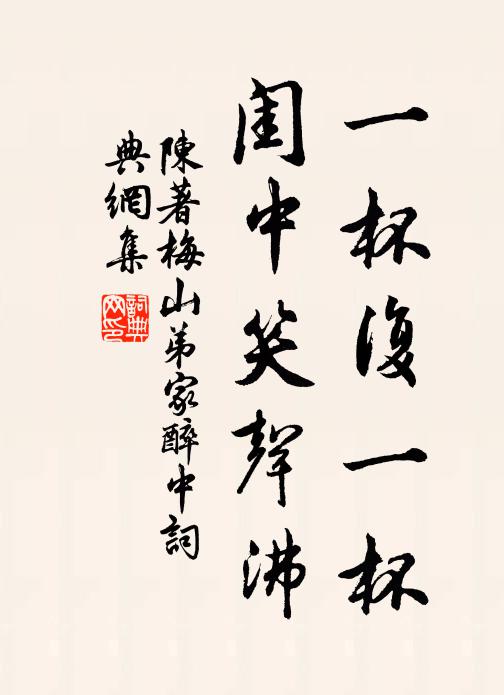 一杯復一杯
閨中笑聲沸
陳著梅山弟家醉中詞
典網集
詞典
网印